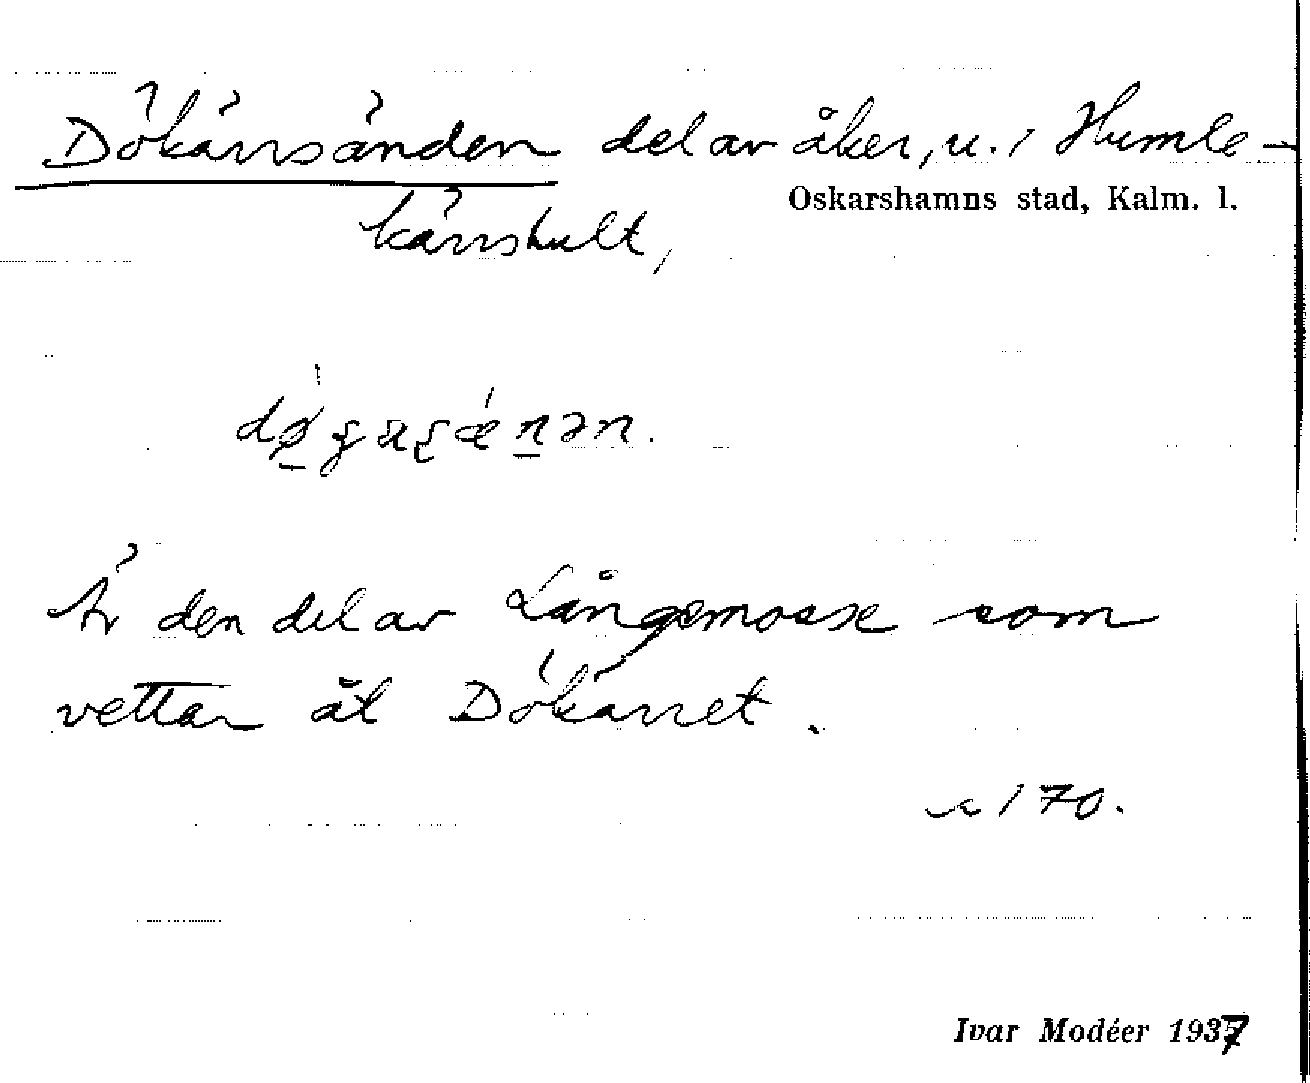 Dökärrsänden del av åker, u. / Humle-
Oskarshamns stad, Kalm. l.
kärrshult,
Är den del av Långemosse som
vettar åt Dökärret.
170.
Ivar Modéer 1937